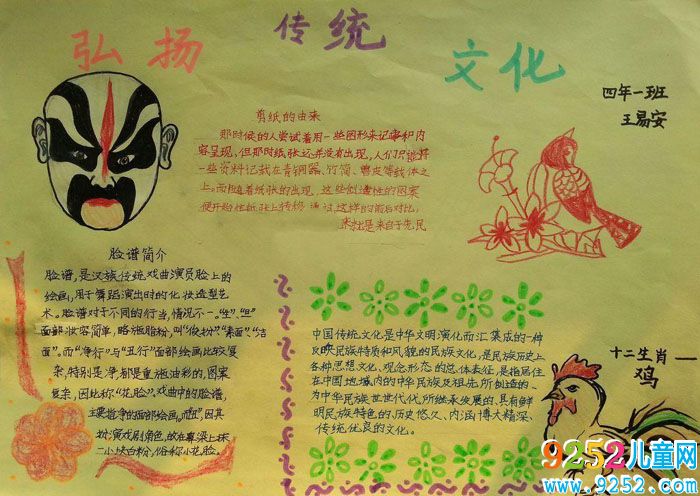 弘扬 传统 文化
四年一班
王易安
剪纸的由来
那时候的人尝试着用一些图形来记事和内
容呈现,但那时纸张还并没有出现,人们只能将
一些资料记载在青铜器、竹简、兽皮等载体之
上。而随着纸张的出现,这些
便开始在纸张上
来就是来自于先民
脸谱简介
脸谱,是汉族传统戏曲演员脸上的
绘画,用于舞蹈演出时的化妆造型艺
术。脸谱对于不同的行当,情况不一。“生”、“旦”
面部妆容简单,略施脂粉,叫“俊扮”、“素面”、“洁
面”。而“净行”与“丑行”面部绘画比较复
杂,特别是净,都是重施油彩的,图案
复杂,因此称“花脸”。戏曲中的脸谱,
主要指净的面部绘画。而“丑”,因其
扮演戏剧角色,故在鼻梁上抹
一小块白粉,俗称小花脸。
中国传统文化是中华文明演化而汇集成的一种
反映民族特质和风貌的民族文化,是民族历史上
各种思想文化、观念形态的总体表征,是指居住
在中国地域内的中华民族及祖先所创造的、
为中华民族世世代代所继承发展的,具有鲜
明民族特色的、历史悠久、内涵博大精深、
传统优良的文化。
十二生肖——
鸡
9252儿童网
www.9252.com